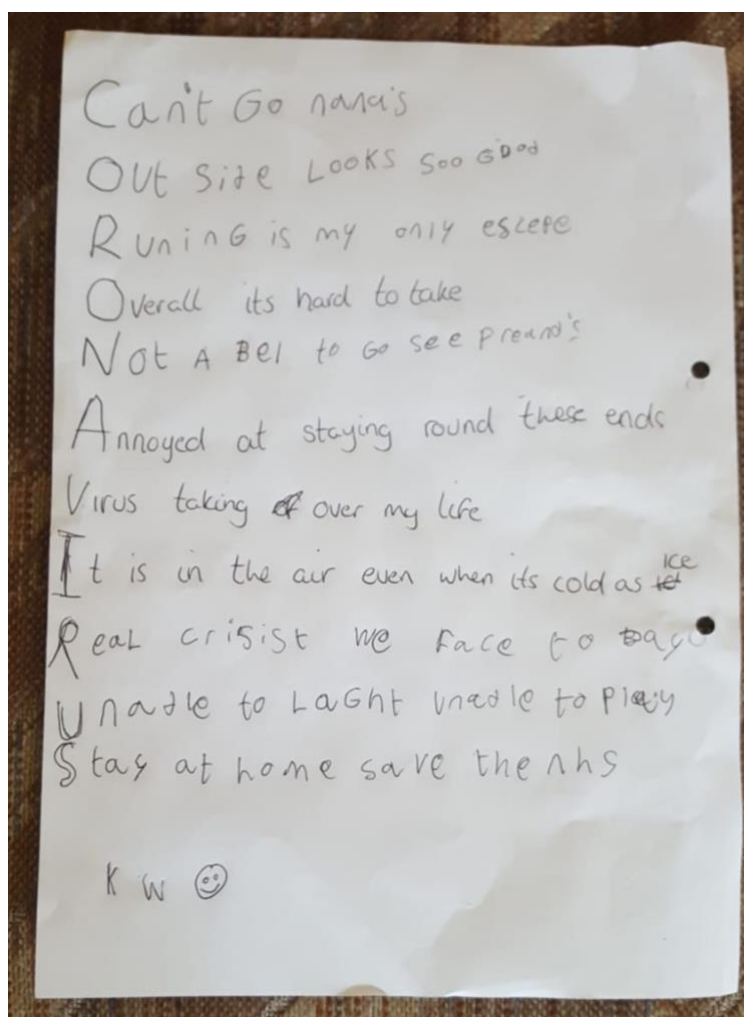 Can't Go nana's
Out Side Looks Soo Good
Runing is my only escepe
Overall its hard to take
Not A Bel to Go see preand's
Annoyed at staying round these ends
Virus taking over my life
It is in the air even when its cold as ice
Real crisist we face to day
Unadle to LaGht unadle to play
Stay at home save the nhs
K W